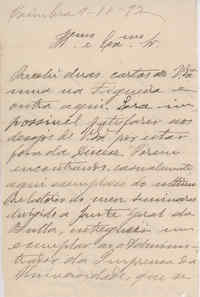 Coimbra 9-11-92
Illmo e Exmo Sr.
Recebi duas cartas de V. Exa
uma na Figueira e
outra aqui. Era im-
possivel satisfazer aos
desejos de V. Exa por estar
fora da Por em
encontrando casualmente
aqui exemplares do
Relatorio do meu seminario
dirigido a Junta Geral da
entreguei um
exemplar ao Adminis-
trador da Imprensa da
Universidade, que se